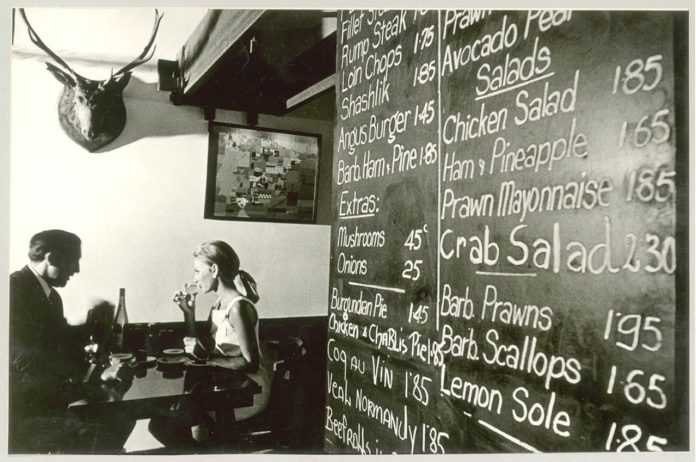 Fillet
Rump Steak
Loin Chops 1·75
Shashlik 1·85
Angus Burger 1·45
Barb. Ham, Pine 1·85
Extras:
Mushrooms 45c
Onions 25
Burgundian Pie 1·45
Chicken & Chablis Pie 1·85
Coq au Vin 1'85
Veal Normandy 1'85
Prawn
Avocado Pear
Salads 1·85
Chicken Salad
Ham & Pineapple 1·65
Prawn Mayonnaise 1·85
Crab Salad 2·30
Barb. Prawns 1'95
Barb. Scallops 1·65
Lemon Sole 1·85